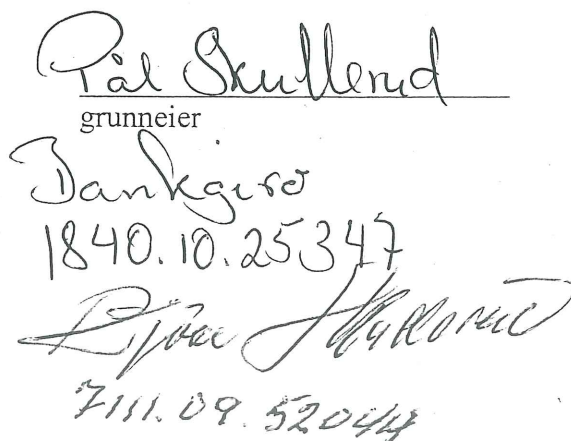 Pål Skullerud
grunneier
Bankgiro
1840.10.25347
Bjørn Skullerud
7111.09.52044